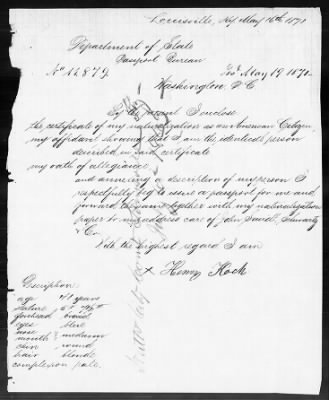 Louisville, Ky May 16th 1871
Department of State
Passport Bureau
No 12879.
May 19 1871
Washington D C
By the present I enclose
the certificate of my naturalization as an American Citizen,
my affidavit showing that I am the identical person
described in said certificate
my oath of allegiance
and annexing a description of my person I
respectfully beg to issue a passport for me and
forward the same together with my naturalization
paper to my address care of John
& Co.
With the highest regard I am
x Henry Koch
Description
age 41 years
stature 5
forehead broad
eyes blue
nose
mouth } medium
chin round
hair blonde
complexion pale.